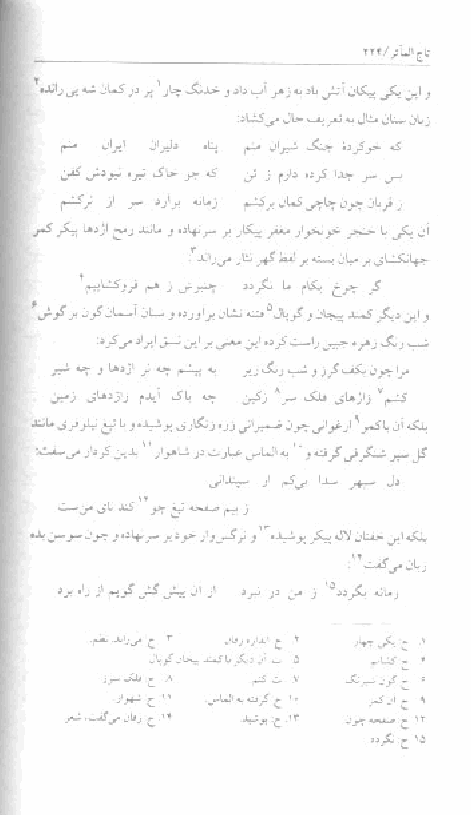 تاج المآثر/۲۲۴
و این یکی پیکان آتش داد به زهر آب داد و خدنگ چار۱ پر در کمان شه پی رانده۲
زبان سنان مثال به تعریف حال می‌گشاد:
که خوکردهٔ جنگ شیران منم پناه دلیران ایران منم
بسی سر جدا کرده دارم ز تن که جز خاک تیره نبودش کفن
ز قربان چون چاچی کمان برکشم زمانه برآرد سر از ترکشم
آن یکی با خنجر خونخوار مغفر پیکار بر سر نهاده و مانند رمح اژدها پیکر کمر
جهانگشای بر میان بسته بر لفظ گهر نثار می‌راند۳:
گر چرخ بکام ما نگردد چنبرش ز هم فروگشاییم۴
و این دیگر کمند پیچان و گوپال۵ فتنه نشان برآورده و سنان آسمان‌گون بر گوش۶
شب رنگ زهره جبین راست کرده این معنی بر این نسق ایراد می‌کرد:
مرا چون بکف گرز و شب رنگ زیر به پیشم چه نر اژدها و چه شیر
کنم۷ اژهای فلک سر۸ زکین چه باک آیدم زاژدهای زمین
بلکه آن باکمر۹ ارغوانی چون ضمیرانی زره زنگاری پوشیده و با تیغ نیلوفری مانند
گل سپر شنگرفی گرفته و۱۰ به الماس عبارت در شاهوار۱۱ بدین کردار می‌سفت:
دل سپهر
ز بیم صفحه تیغ چو۱۲ کند نای من‌ست
بلکه این خفتان لاله پیکر پوشیده۱۳ و نرگس‌وار خود بر سر نهاده و چون سوسن بده
زبان می‌گفت۱۴:
زمانه بگردد۱۵ ز من در نبرد از آن پیش گش گویم از راه برد
۱. ج: یکی چهار ۲. ج ۳. ج می‌راند. نظم.
۴. ج گشائم ۵. ت آن دیگر با کمند پیچان گوپال
۶. ج گون شبرنگ ۷. ت کنم ۸. ج فلک سرز
۹. ج آن کمر ۱۰. ج گرفته به الماس. ۱۱. ج شهوار.
۱۲. ج صفحه چون ۱۳. ج: پوشید ۱۴. ج زفان می‌گفت، شعر
۱۵. ج نگردد